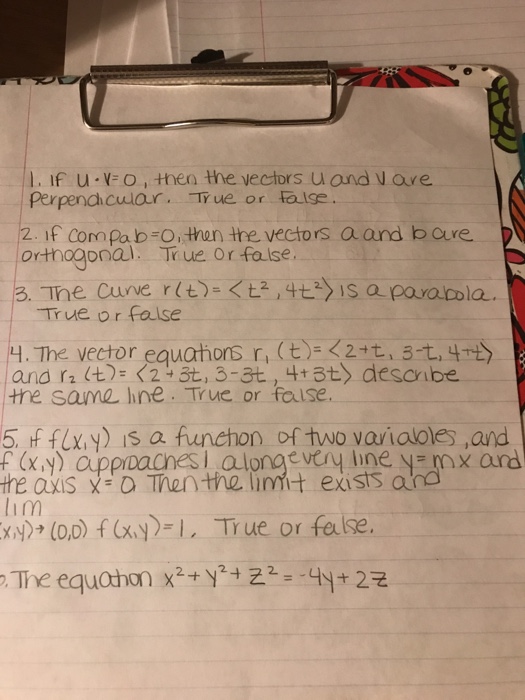 1. If u·v=0, then the vectors u and v are
Perpendicular. True or False.
2. If compab=0, then the vectors a and b are
orthogonal. True or false.
3. The curve r(t)=<t², 4t²> is a parabola.
True or false
4. The vector equations r₁(t)=<2+t, 3-t, 4+t>
and r₂(t)=<2+3t, 3-3t, 4+3t> describe
the same line. True or false.
5. If f(x,y) is a function of two variables, and
f(x,y) approaches 1 along every line y=mx and
the axis x=0 Then the limit exists and
lim
(x,y)→(0,0) f(x,y)=1. True or false.
The equation x²+y²+z²=-4y+2z